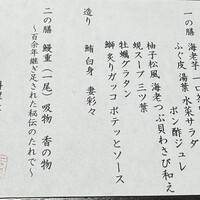 一の膳
ふぐ皮 湯葉 水菜サラダ
ポン酢ジュレ
柚子松風 海老つぶ貝わさび和え
蜆スープ 三ツ葉
牡蠣グラタン
鰤炙りガッコ ポテッとソース
造り 鮪 白身 妻彩々
二の膳 鰻重(一尾) 吸物 香の物
〜百余年継ぎ足された秘伝のたれで〜